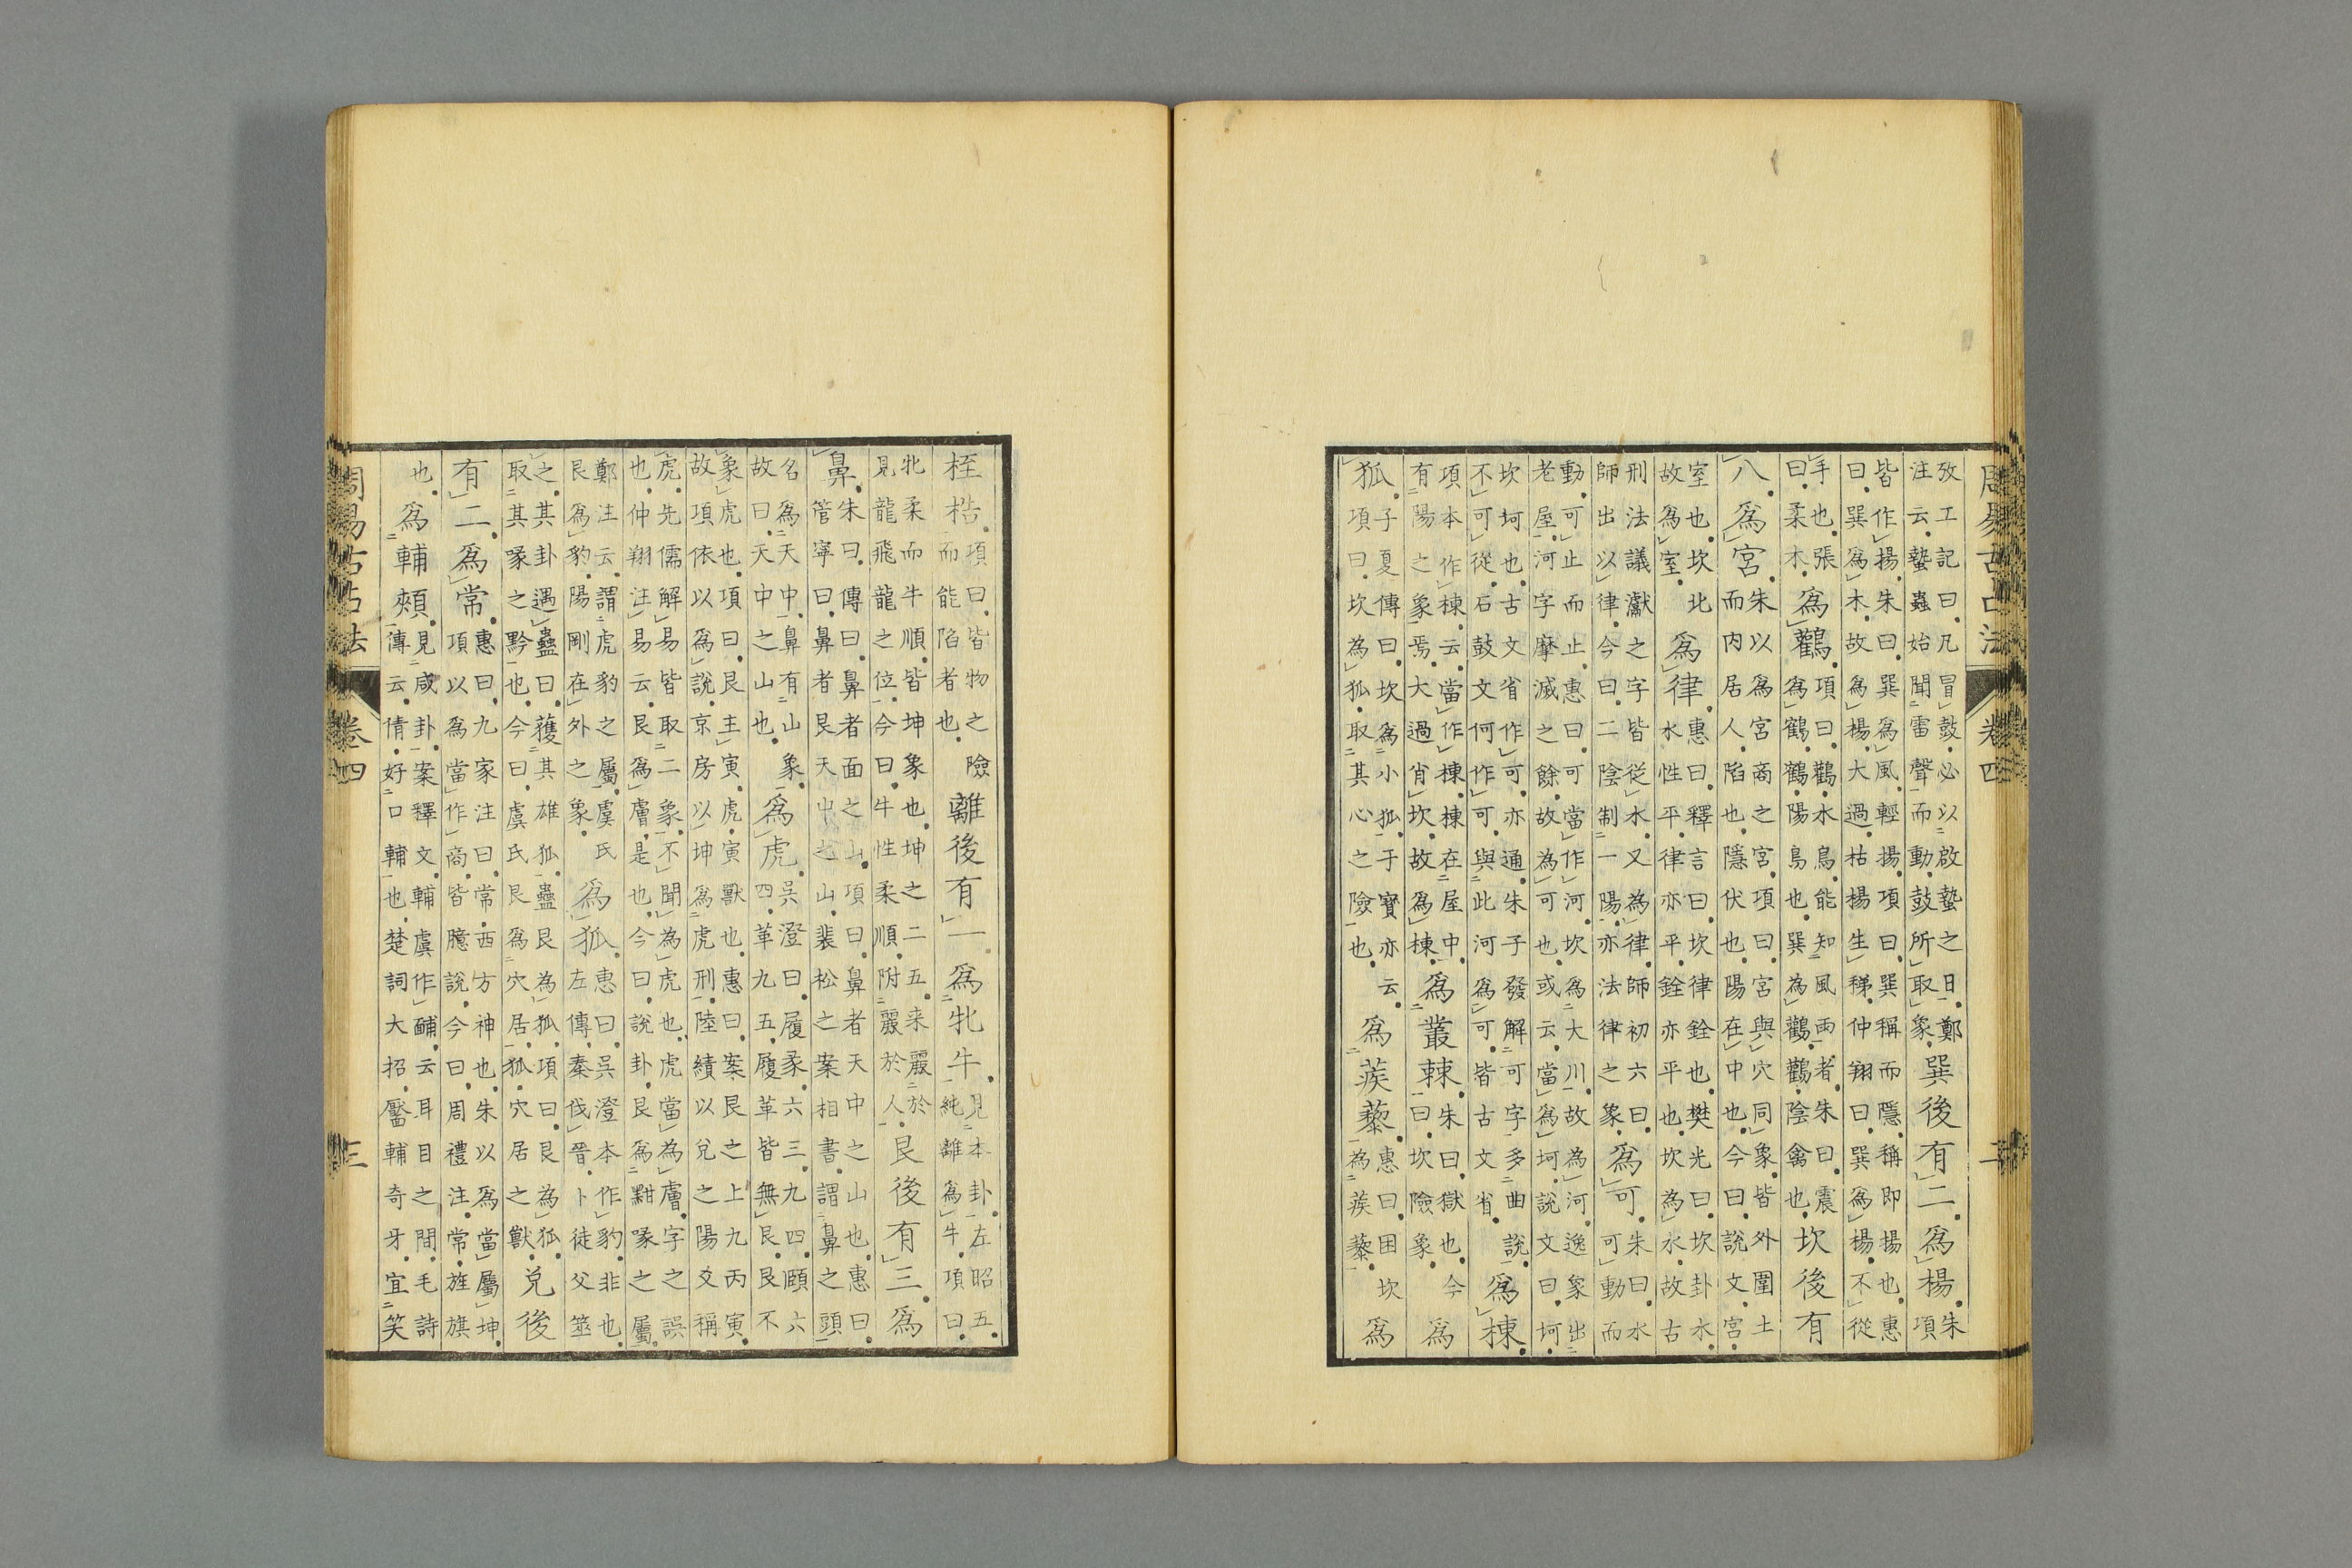 周易古占法 卷四 二
攷工記曰。凡冒鼓必以啟蟄之日。鄭
注云。蟄蟲始聞雷聲而動。鼓所取象。
巽後有二。為楊。朱
項
皆作揚。朱曰。巽為風。輕揚。項曰。巽稱而隱。稱即揚也。惠
曰。巽為木。故為楊。大過。枯楊生稊。仲翔曰。巽為楊。不從
手也。張
曰。柔木。
為鸛。項曰。鸛水鳥。能知風雨者。朱曰。震
為鶴。鶴陽鳥也。巽為鸛。鸛陰禽也。
坎後有
八。為宮。朱以為宮商之宮。項曰。宮與穴同象。皆外圍土
而内居人。陷也。隱伏也。陽在中也。今曰。說文。宮。
室也。坎北
故為室。
為律。惠曰。釋言曰。坎律銓也。樊光曰。坎卦水。
水性平。律亦平。銓亦平也。坎為水。故古
刑法議讞之字皆從水。又為律。師初六曰。
師出以律。今曰。二陰制一陽。亦法律之象。
為可。朱曰。水
可動而
動。可止而止。惠曰。可當作河。坎為大川。故為河。逸象出
老屋。河字摩滅之餘。故為可也。或云。當為坷。說文曰。坷。
坎坷也。古文省作可。亦通。朱子發解可字多曲說。
不可從。石鼓文何作可。與此河為可。皆古文省。
為棟。
項本作棟。云。當作棟。棟在屋中。
有陽之象焉。大過肖坎。故為棟。
為叢棘。朱曰。獄也。今
曰。坎險象。
為
狐。子夏傳曰。坎為小狐。于寶亦云。
項曰。坎為狐。取其心之險也。
為蒺藜。惠曰。困坎
為蒺藜。
為
桎梏。項曰。皆物之險
而能陷者也。
離後有一。為牝牛。見本卦。左昭五。
純離為牛。項曰。
牝柔而牛順。皆坤象也。坤之二五。来麗於
見龍飛龍之位。今曰。牛性柔順。附麗於人。
艮後有三。為
鼻。朱曰。傳曰。鼻者面之山。項曰。鼻者天中之山也。惠曰。
管寧曰。鼻者艮。天中之山。裴松之案。相書謂鼻之頭
名為天中。鼻有山象。
故曰。天中之山也。
為虎。吳澄曰。履彖六三。九四。頤六
四。革九五。履革皆無艮。艮不
象虎也。項曰。艮主寅。虎。寅獸也。惠曰。案艮之上九丙寅。
故項依以為說。京房以坤為虎刑。陸績以兌之陽爻稱
虎。先儒解易皆取二象。不聞為虎也。虎當為膚。字之誤
也。仲翔注易云。艮為膚。是也。今曰。說卦。艮為黔喙之屬。
鄭注云。謂虎豹之屬。虞氏
艮為豹。陽剛在外之象。
為狐。惠曰。吳澄本作豹。非也。
左傳。秦伐晉。卜徒父筮
之。其卦遇蠱曰。獲其雄狐。蠱艮為狐。項曰。艮為狐。
取其喙之黔也。今曰。虞氏艮為穴居。狐穴居之獸。
兌後
有二。為常。惠曰。九家注曰。常。西方神也。朱以為當屬坤。
項以為當作商。皆臆說。今曰。周禮注。常。旌旗
也。為輔頰。見咸卦。案釋文。輔虞作䩉。云耳目之間。毛詩
傳云。倩。好口輔也。楚詞大招。靨輔奇牙。宜笑
周易古占法 卷四 三